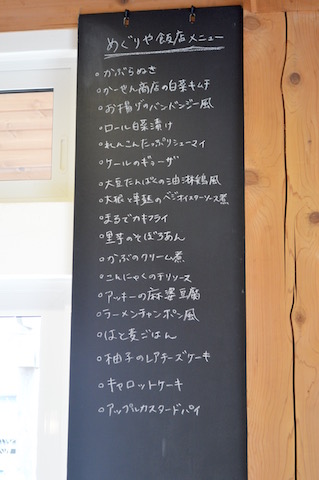 めぐりや飯店メニュー
○かぶらぬき
○かーやん商店の白菜キムチ
○お揚げのバンバンジー風
○ロール白菜漬け
○れんこんたっぷりシューマイ
○ケールのギョーザ
○大豆たんぱくの油淋鶏風
○大根と車麩のベジオイスターソース煮
○まるでカキフライ
○里芋のそぼろあん
○かぶのクリーム煮
○こんにゃくのチリソース
○アッキーの麻婆豆腐
○ラーメンチャンポン風
○はと麦ごはん
○柚子のレアチーズケーキ
○キャロットケーキ
○アップルカスタードパイ